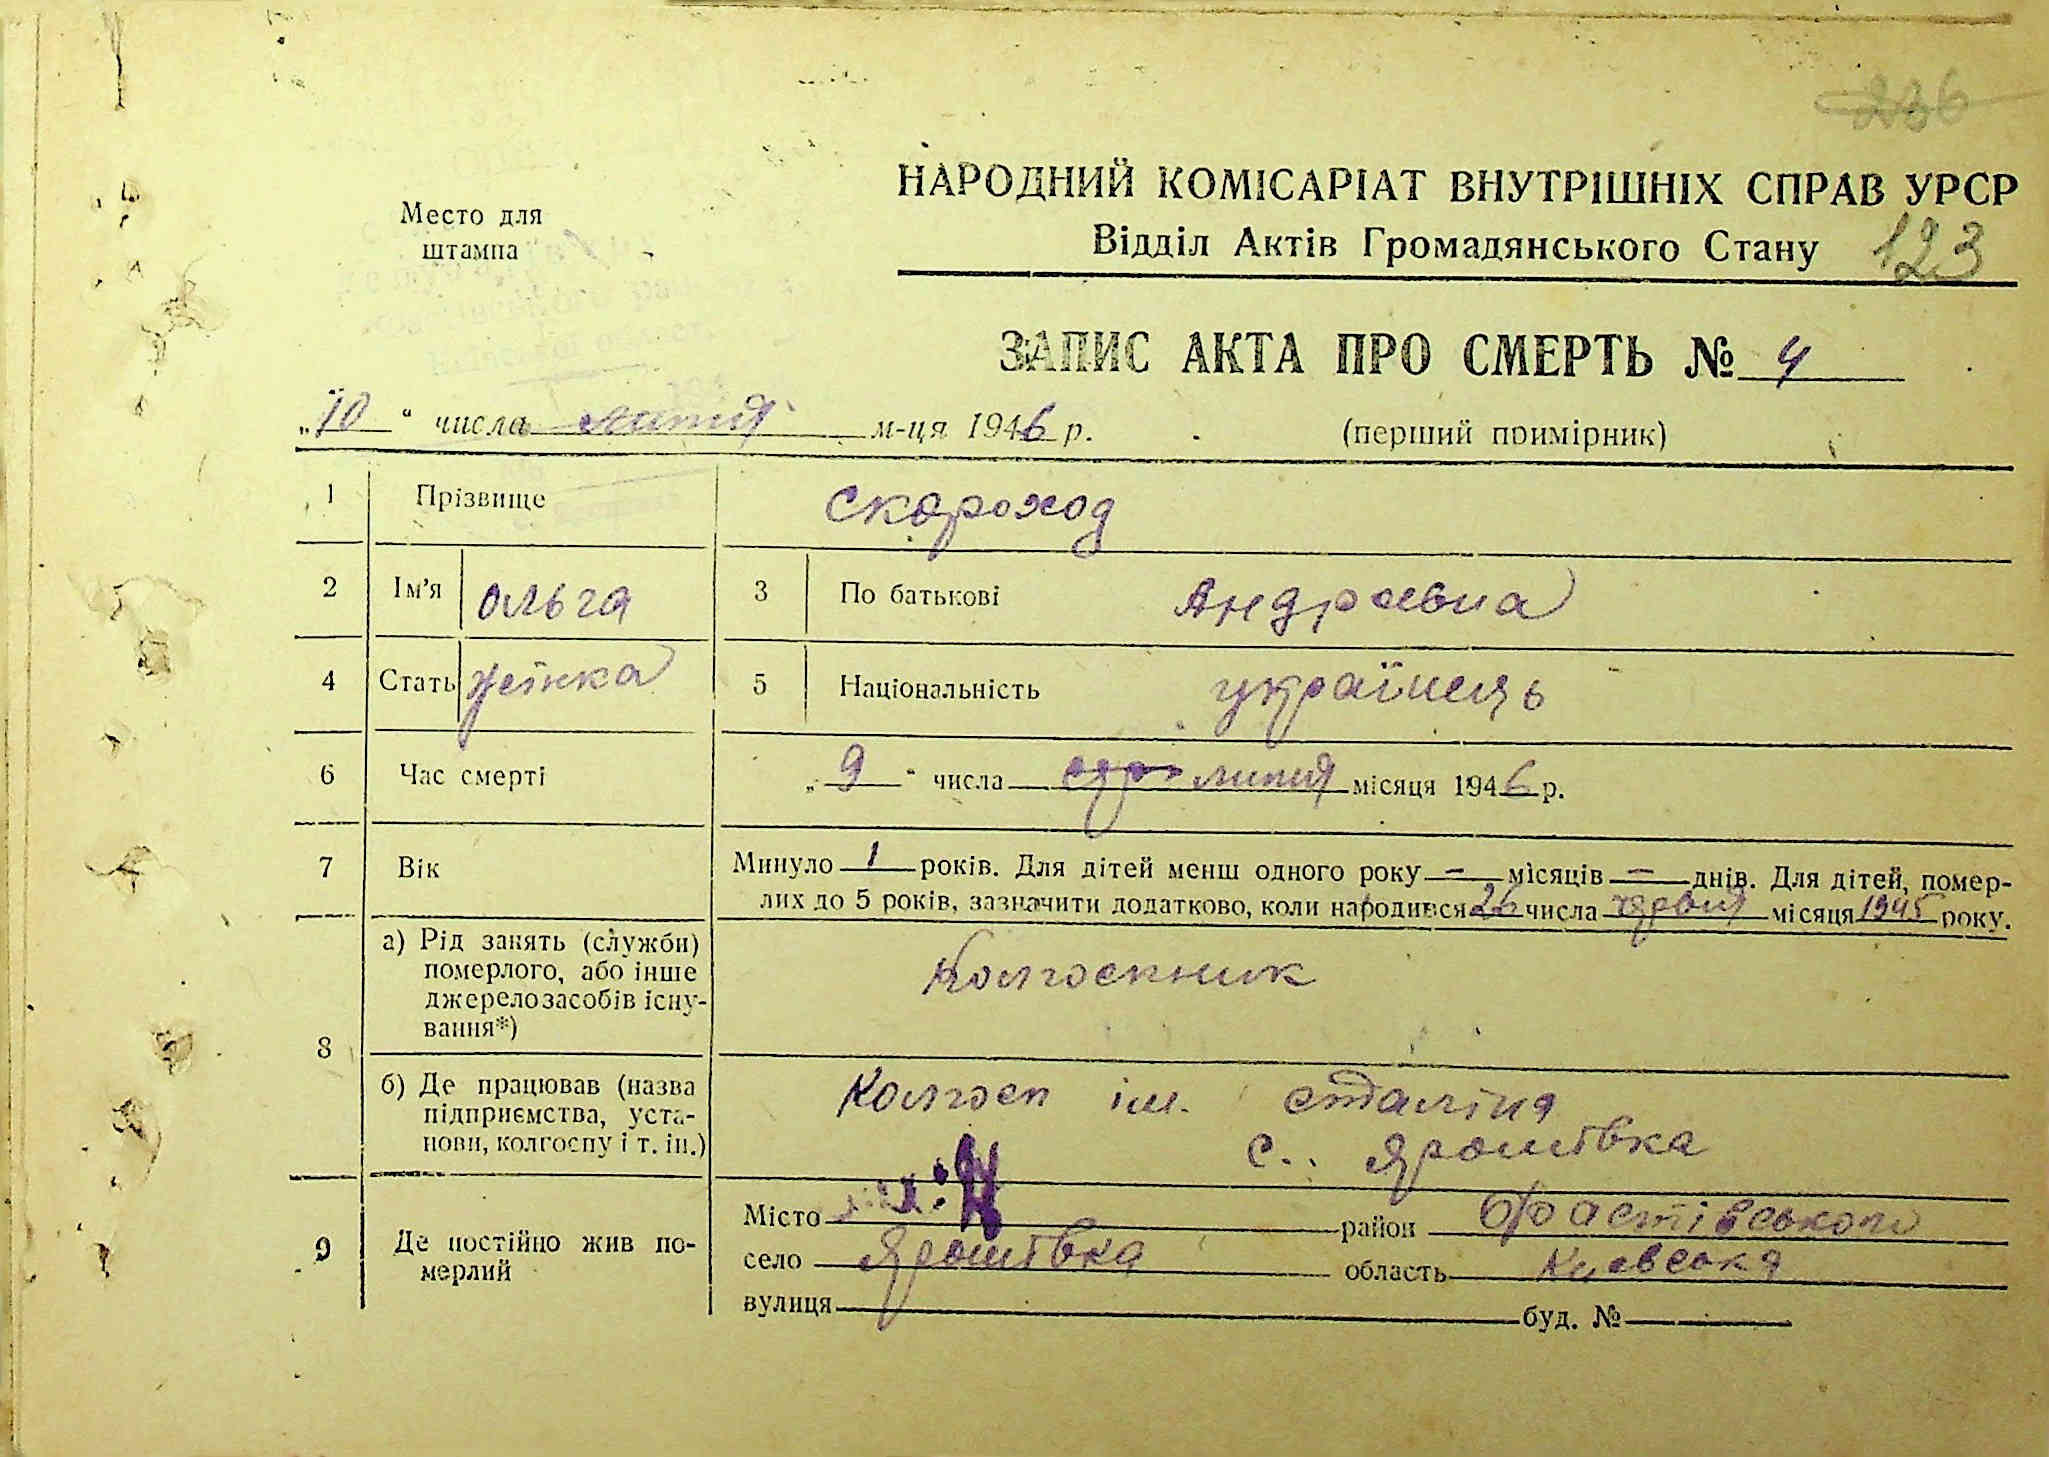 236
НАРОДНИЙ КОМІСАРІАТ ВНУТРІШНІХ СПРАВ УРСР
Место для
штампа
Відділ Актів Громадянського Стану 123
ЗАПИС АКТА ПРО СМЕРТЬ № 4
„10“ числа липня м-ця 1946 р. (перший примірник)
1 Прізвище Скороход
2 Ім'я Ольга 3 По батькові Андреевна
4 Стать жінка 5 Національність українець
6 Час смерті „9“ числа липня місяця 1946 р.
7 Вік Минуло 1 років. Для дітей менш одного року — місяців — днів. Для дітей, помер-
лих до 5 років, зазначити додатково, коли народився 26 числа червня місяця 1945 року.
8 а) Рід занять (служби)
померлого, або інше
джерело засобів існу-
вання*) Колгоспник
б) Де працював (назва
підприємства, уста-
нови, колгоспу і т. ін.) Колгосп ім. Сталіна
с. Ярошівка
9 Де постійно жив по-
мерлий
Місто район Фастівського
село Ярошівка область Киевська
вулиця буд. №